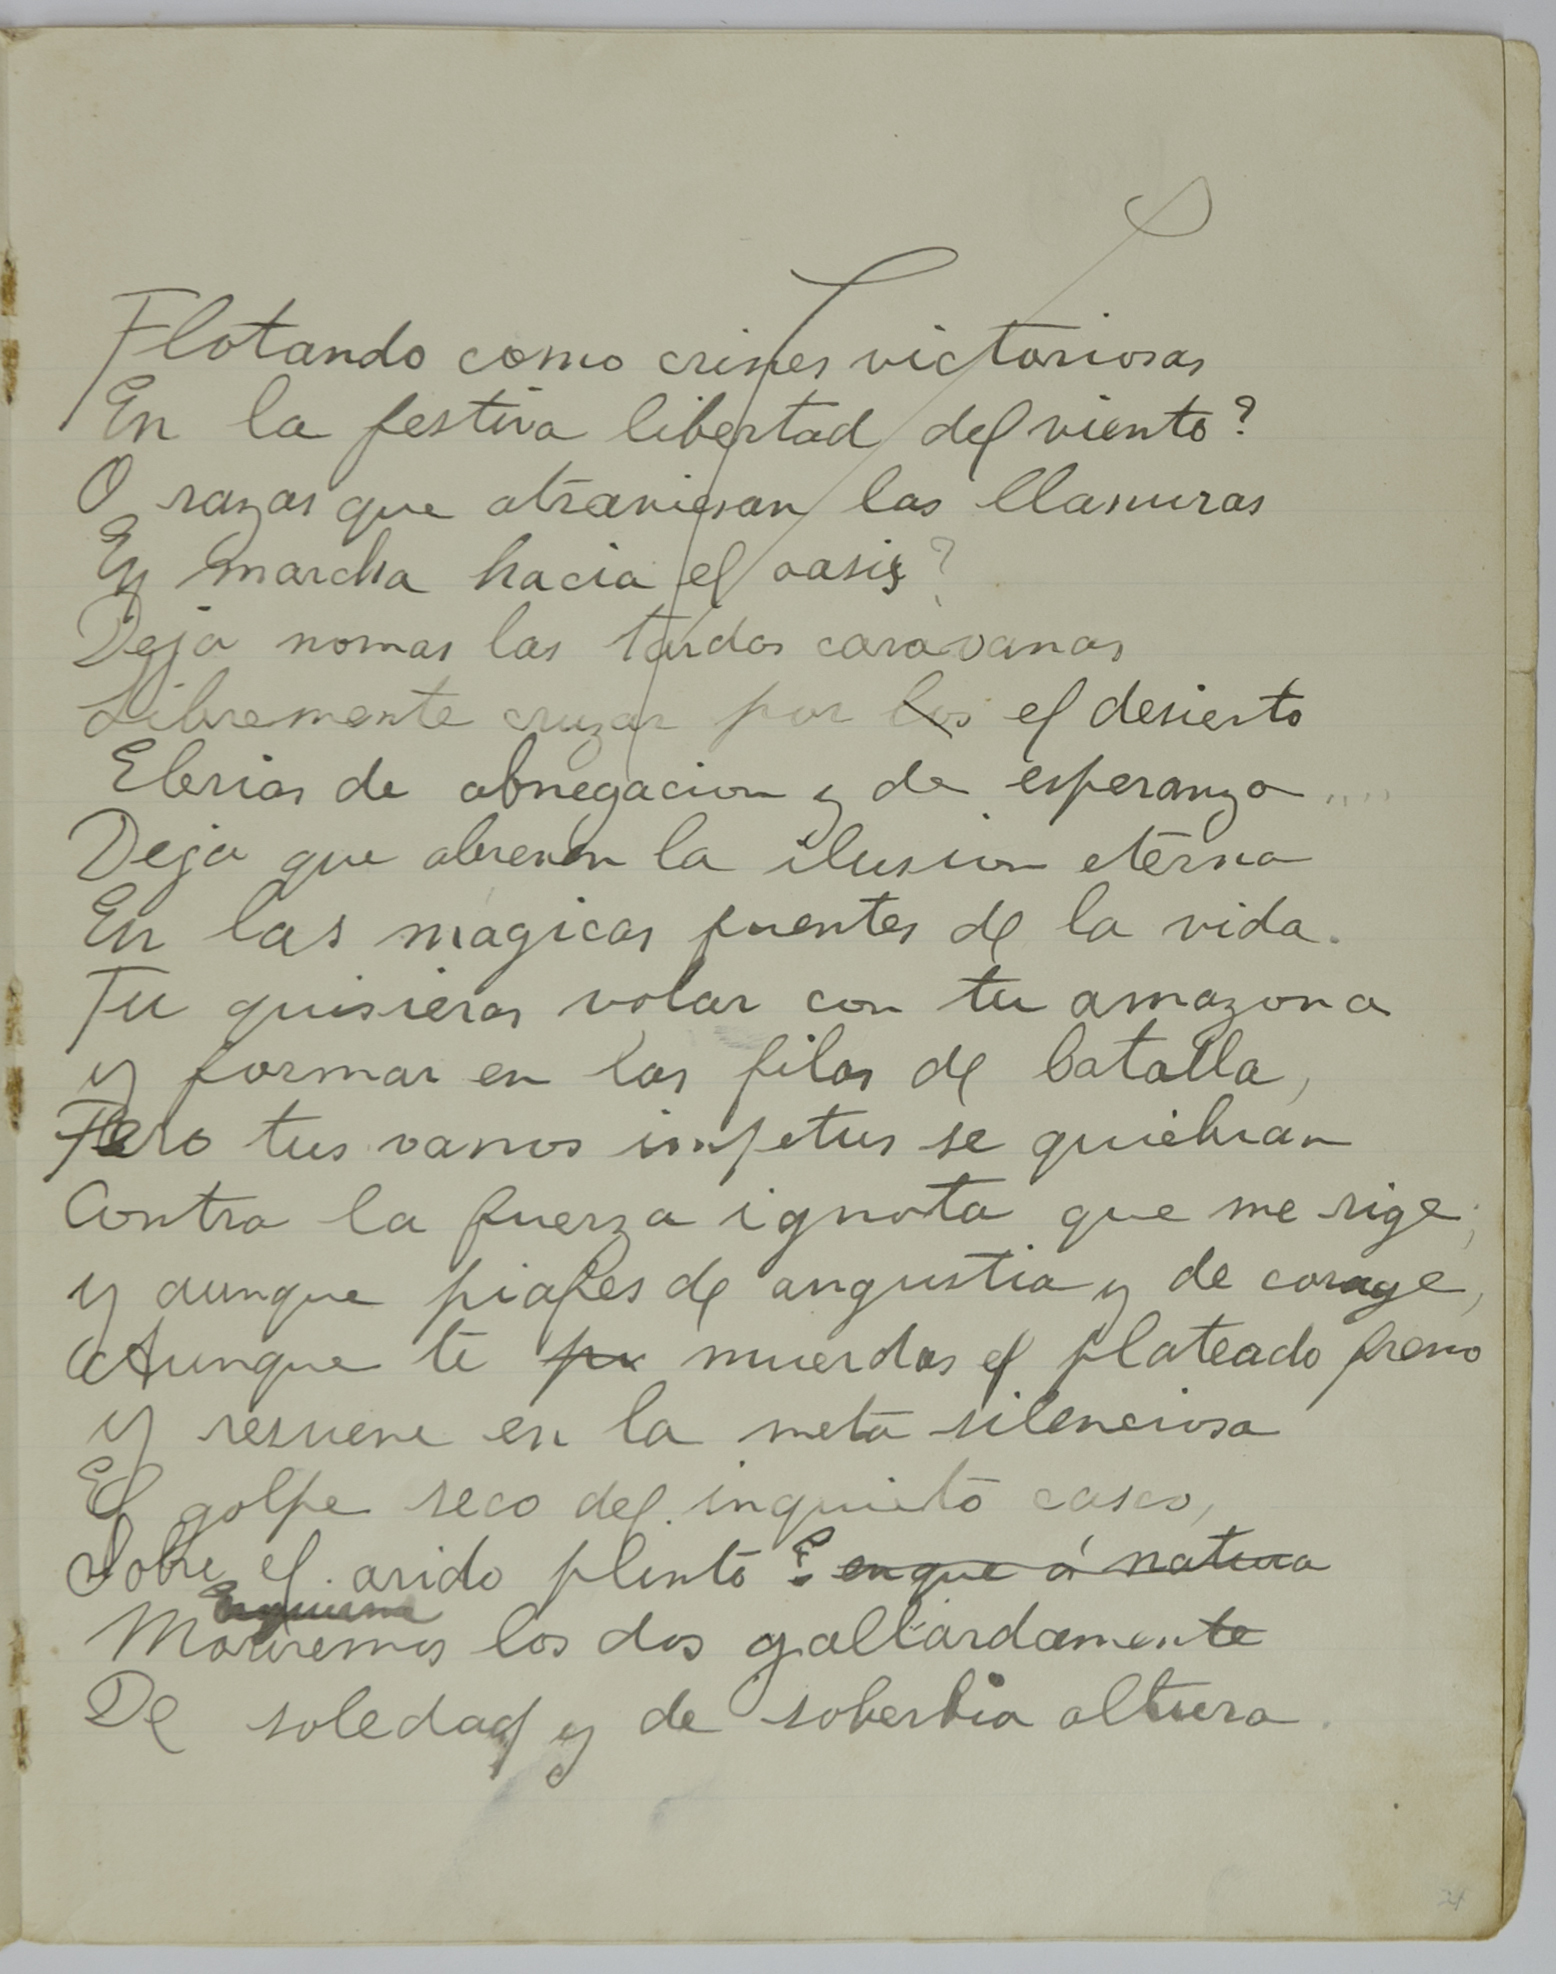 Flotando como crines victoriosas
En la festiva libertad del viento?
O razas que atraviesan las llanuras
En marcha hacia el oasis?
Deja nomas las tardas caravanas
Libremente cruzar por los el desierto
Ebrias de abnegacion y de esperanza....
Deja que abreven la ilusion eterna
En las magicas fuentes de la vida.
Tu quisieras volar con tu amazona
y formar en las filas de batalla,
Pero tus vanos impetus se quiebran
Contra la fuerza ignota que me rige;
y aunque piafes de angustia y de corage,
Aunque te pu muerdas el plateado freno
y resuene en la meta silenciosa
El golpe seco del inquieto casco,
Sobre el arido plinto en que á natura
Erguirme
Moriremos los dos gallardamente
De soledad y de soberbia altura.
24